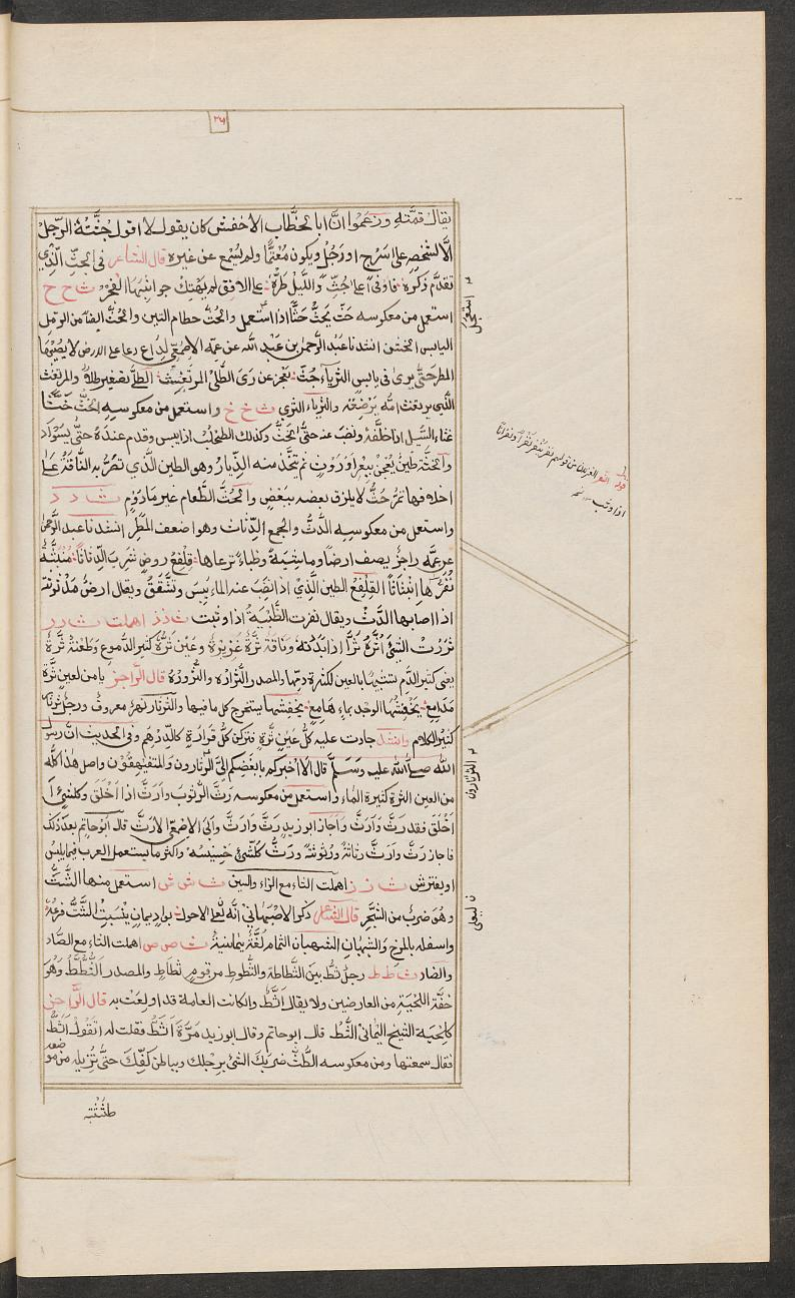 ٣٦
يقال قمّته وزعموا انّ ابا الخطّاب الاخفش كان يقول لا اقول جُثّة الرّجل
الّا لشخص على سرج او رحل ويكون معتمّا ولم يُسمع عن غيره قال الشاعر في الجثّ الّذي
تقدّم ذكره فاوفى على جُثّ واللّيل طرّة على الافق لم يهتك جوانبها الفجر ث ح ح
استعمل من معكوسه حثّ يحثّ حثّا اذا استعجل والحُثّ حطام التبن والحُثّ ايضا من الرمل
اليابس الخشن انشدنا عبد الرّحمن بن عبد اللّه عن عمّه الاصمعيّ لداع دعا على ارض لا يصيبها
المطر حتّى يرى في يابس الثرياء حُثّ يعجز عن ريّ الطُّلَيّ المرتغث الطليّ تصغير طلا والمرتغث
الّذي يرتغث امّه يرضعه والثرياء الثرى ث خ خ واستعمل من معكوسه الخُثّ خُثّا
غثاء السّيل اذا خلّفه ونضب عنه حتّى يجفّ وكذلك الطحلب اذا يبس وقدم عنده حتّى يسوادّ
والخُثّة طين يُعجن ببعر او روث ثم يتّخذ منه الذّيار وهو الطين الّذي تصرّ به النّاقة على
اخلافها تمر حُثّ لا يلزق بعضه ببعض والحُثّ الطّعام غير مأدوم ث د د
واستعمل من معكوسه الدّثّ والجمع الدّثاث وهو اضعف المطر انشدنا عبد الرّحمن
عن عمّه راجز يصف ارضا وماشية وظباء ترعاها قِلفع روض شرب الدّثاثا منبثّة
نفزّها انبثاثا القِلفع الطين الّذي اذا نضب عنه الماء يبس وتشقّق ويقال ارض مدثوثة
اذا اصابها الدّثّ ويقال نفزت الظّبية اذا وثبت ث ذ ذ اهملت ث ر ر
ثررت الشئ اثرّه ثرّا اذا بدّدته وناقة ثرّة غزيرة وعين ثرّة كثير الدّموع وطعنة ثرّة
يعنى كثير الدّم تشبيها بالعين لكثرة دمها والمصدر الثّرارة والثّرورة قال الرّاجز يا من لعين ثرّة
مدامع يخفشها الوجد بماء هامع يخفشها يستخرج كل ما فيها والثرثار نهر معروف ورجل ثرثار
كثير الكلام وانشد جادت عليه كلّ عين ثرّة فتركن كلّ قرارة كالدّرهم وفي الحديث انّ رسول
اللّه صلّى اللّه عليه وسلّم قال الا اخبركم بابغضكم الىّ الثّرثارون والمتفيهقون واصل هذا كلّه
من العين الثرة كثيرة الماء واستعمل من معكوسه رثّ الثّوب وارثّ اذا اخلق وكلّ شئ
اخلق فقد رثّ وارثّ واجاز ابو زيد رثّ وارثّ وابى الاصمعي الا رثّ قال ابو حاتم بعد ذلك
فاجاز رثّ وارثّ رثاثة ورثوثة ورثّ كلّ شئ خسيسه واكثر ما يستعمل العرب فيما يلبس
او يفترش ث ز ز اهملت الثاء مع الزاء والسين ث ش ش استعمل منها الشّثّ
وهو ضرب من الشّجر قال الشاعر ذكر الاصبهاني انّه ليعلى الاحول بواد يمان ينبت الشّثّ فرعه
واسفله بالمرخ والشبهان الشبهان الثمام لغة يمانية ث ص ص اهملت الثاء مع الصّاد
والضاد ث ط ط رجل ثطّ بيّن الثّطاطة والثّطوط من قوم ثطاط والمصدر الثّطط وهو
خفّة اللحية من العارضين ولا يقال اثطّ وان كانت العامة قد اولعت به قال الرّاجز
كلحية الشيخ اليماني الثّطّ قال ابو حاتم وقال ابو زيد مرّة اثطّ فقلت له اتقول اثطّ
فقال سمعتها ومن معكوسه الطّثّ ضربك الشئ برجلك وبباطن كفّك حتّى تزيله من موضعه
طثثته
استعجل
الثرثارون
ليعلى